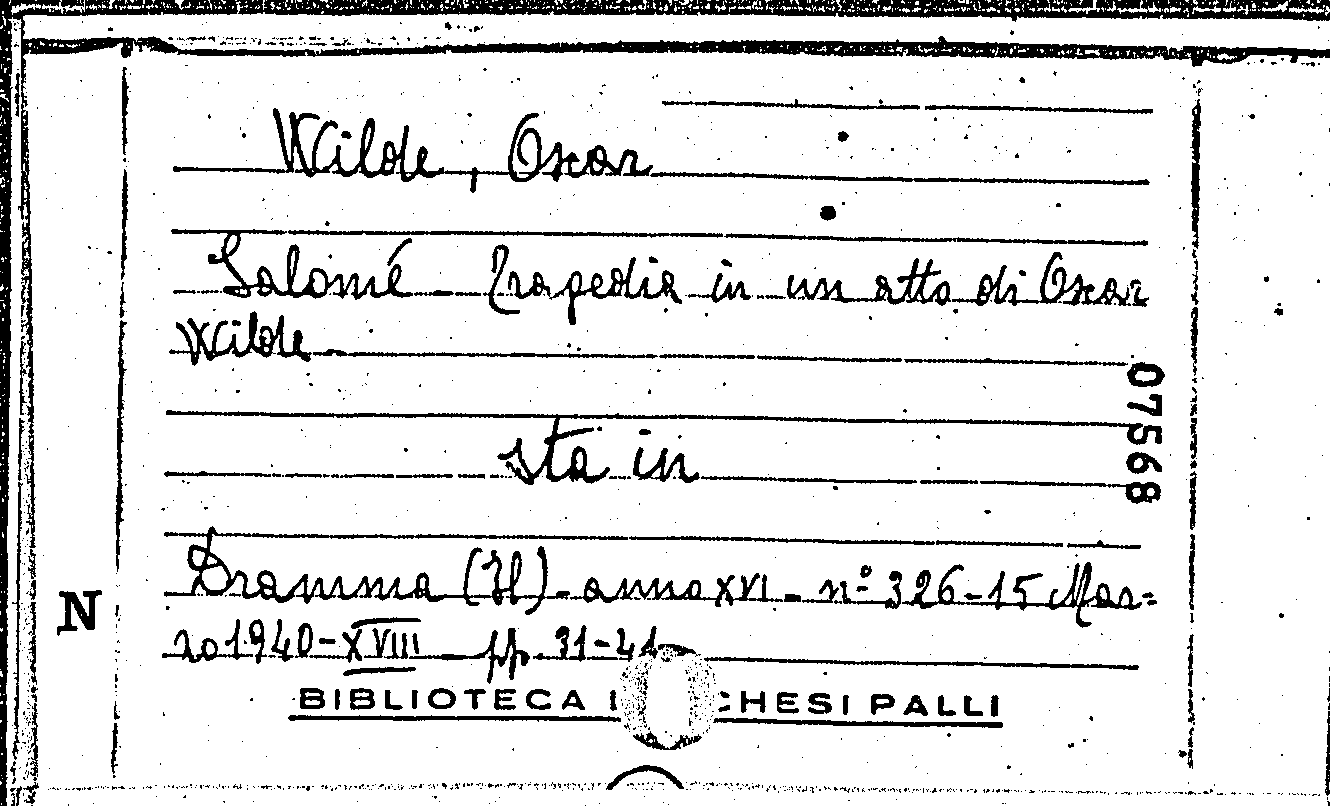 Wilde, Oscar
Salomé - Tragedia in un atto di Oscar
Wilde -
sta in
07568
Dramma (Il) - anno XVI - n° 326 - 15 Mar=
zo 1940 - XVIII - pp. 31-41
N
BIBLIOTECA L CHESI PALLI